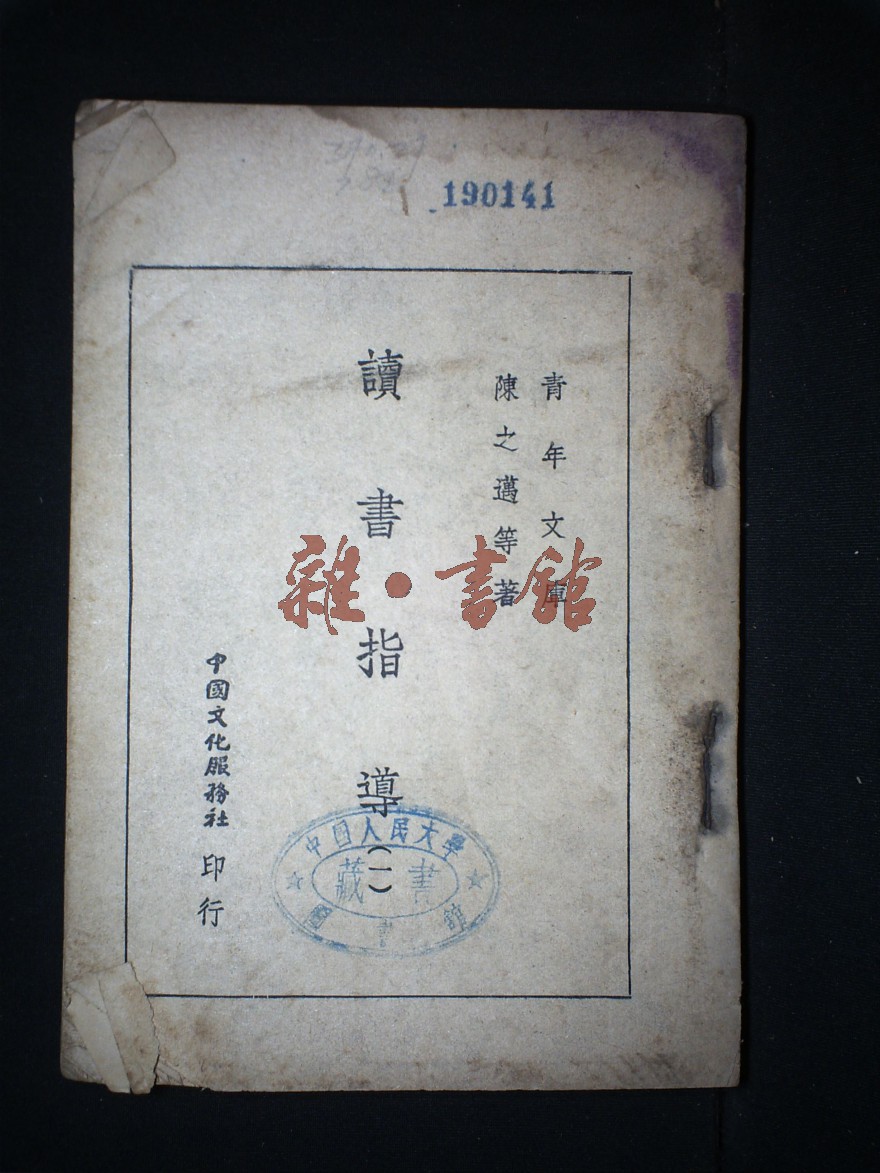 190141
青年文庫
陳之邁等著
讀書指導(一)
中國文化服務社 印行
雜·書館
中國人民大學
藏書
圖書館